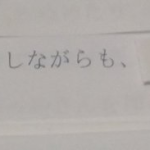 しながらも、